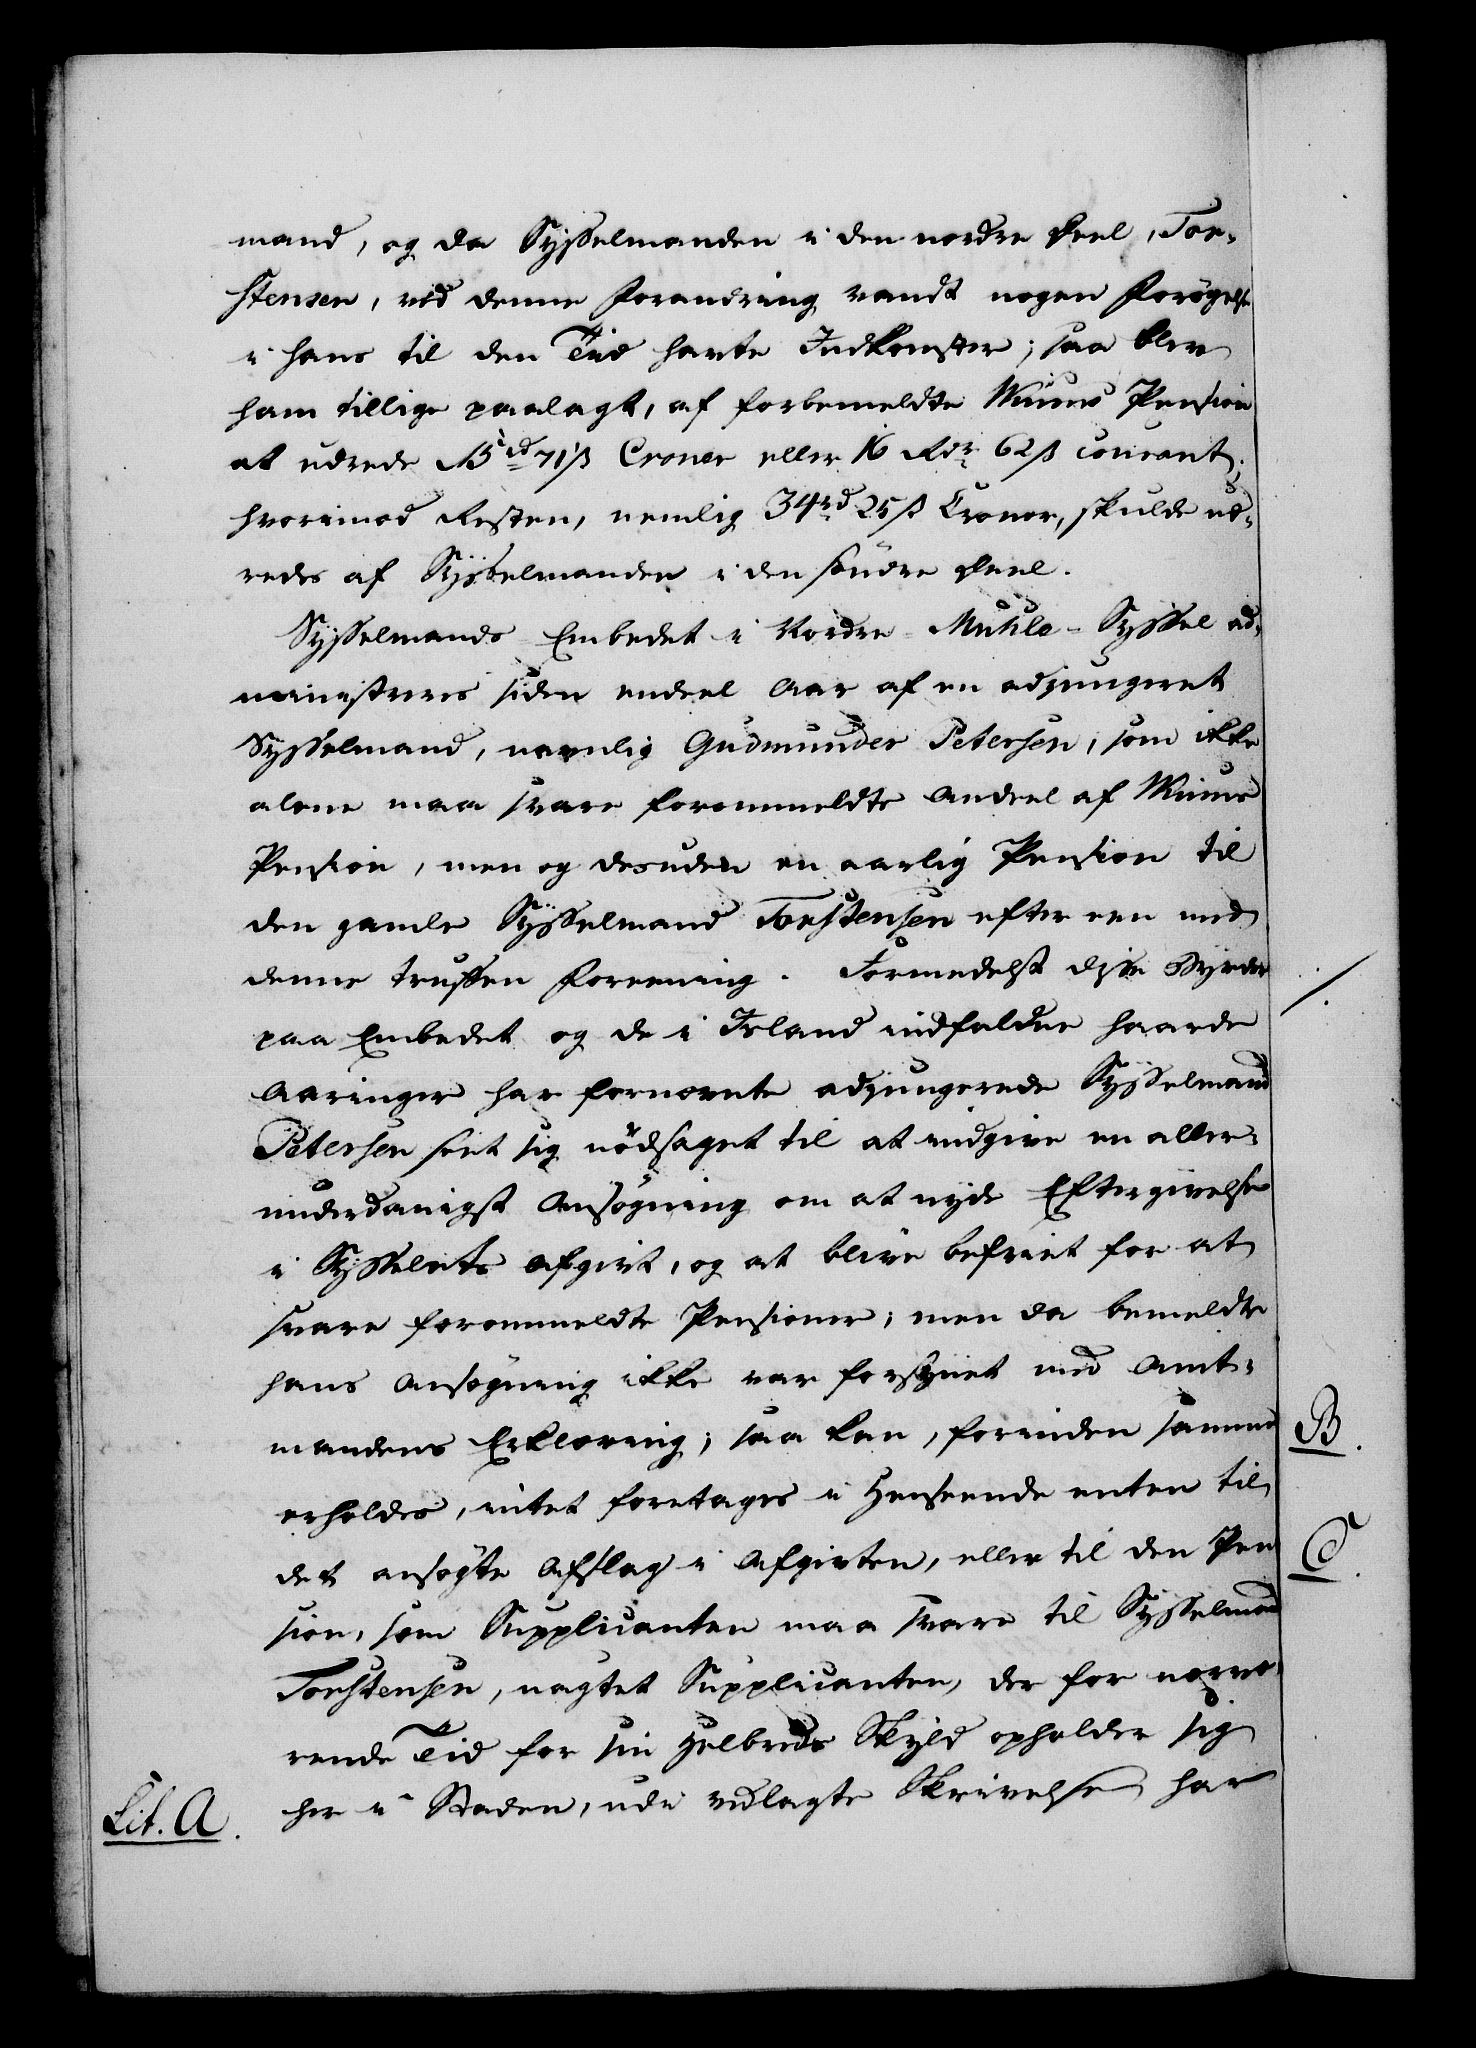 mand, og da Sysselmanden i den nordre Deel, Tor-
stensen, ved denne Forandring vandt nogen Forögelse
i hans til den Tiid havte Indkomster; saa blev
ham tillige paalagt, af forbemeldte Wiums Pension
at udrede 15 rd 71 ß Croner eller 16 Rdr 62 ß courant;
hvorimod Resten, nemlig 34 rd 25 ß Croner, skulde ud-
redes af Sysselmanden i den söndre Deel.
Sysselmands Embedet i Nordre-Muhle-Syssel ad-
ministreres siden endeel Aar af en adjungeret
Sysselmand, navnlig Gudmunder Petersen, som ikke
alene maa svare forommeldte Andeel af Wiums
Pension, men og desuden en aarlig Pension til
den gamle Sysselmand Torstensen efter een med
denne truffen Foreening. Formedelst disse Byrder
paa Embedet og de i Island indfaldne haarde
Aaringer har fornævnte adjungerede Sysselmand
Petersen seet sig nödsaget til at indgive en aller-
underdanigst Ansögning om at nyde Eftergivelse
i Sysselets Afgivt, og at blive befriet for at
svare forommeldte Pensioner; men da bemeldte
hans Ansögning ikke var forsynet med Amt-
mandens Erklæring; saa kan, forinden samme
erholdes, intet foretages i Henseende enten til
det ansögte Afslag i Afgivten, eller til den Pen
sion, som Supplicanten maa svare til Sysselmand
Torstensen, uagtet Supplicanten, der for nærvæ-
rende Tid for sin Helbreds Skyld opholder sig
her i Staden, udi vedlagte Skrivelse har
Lit. A.
B.
C.